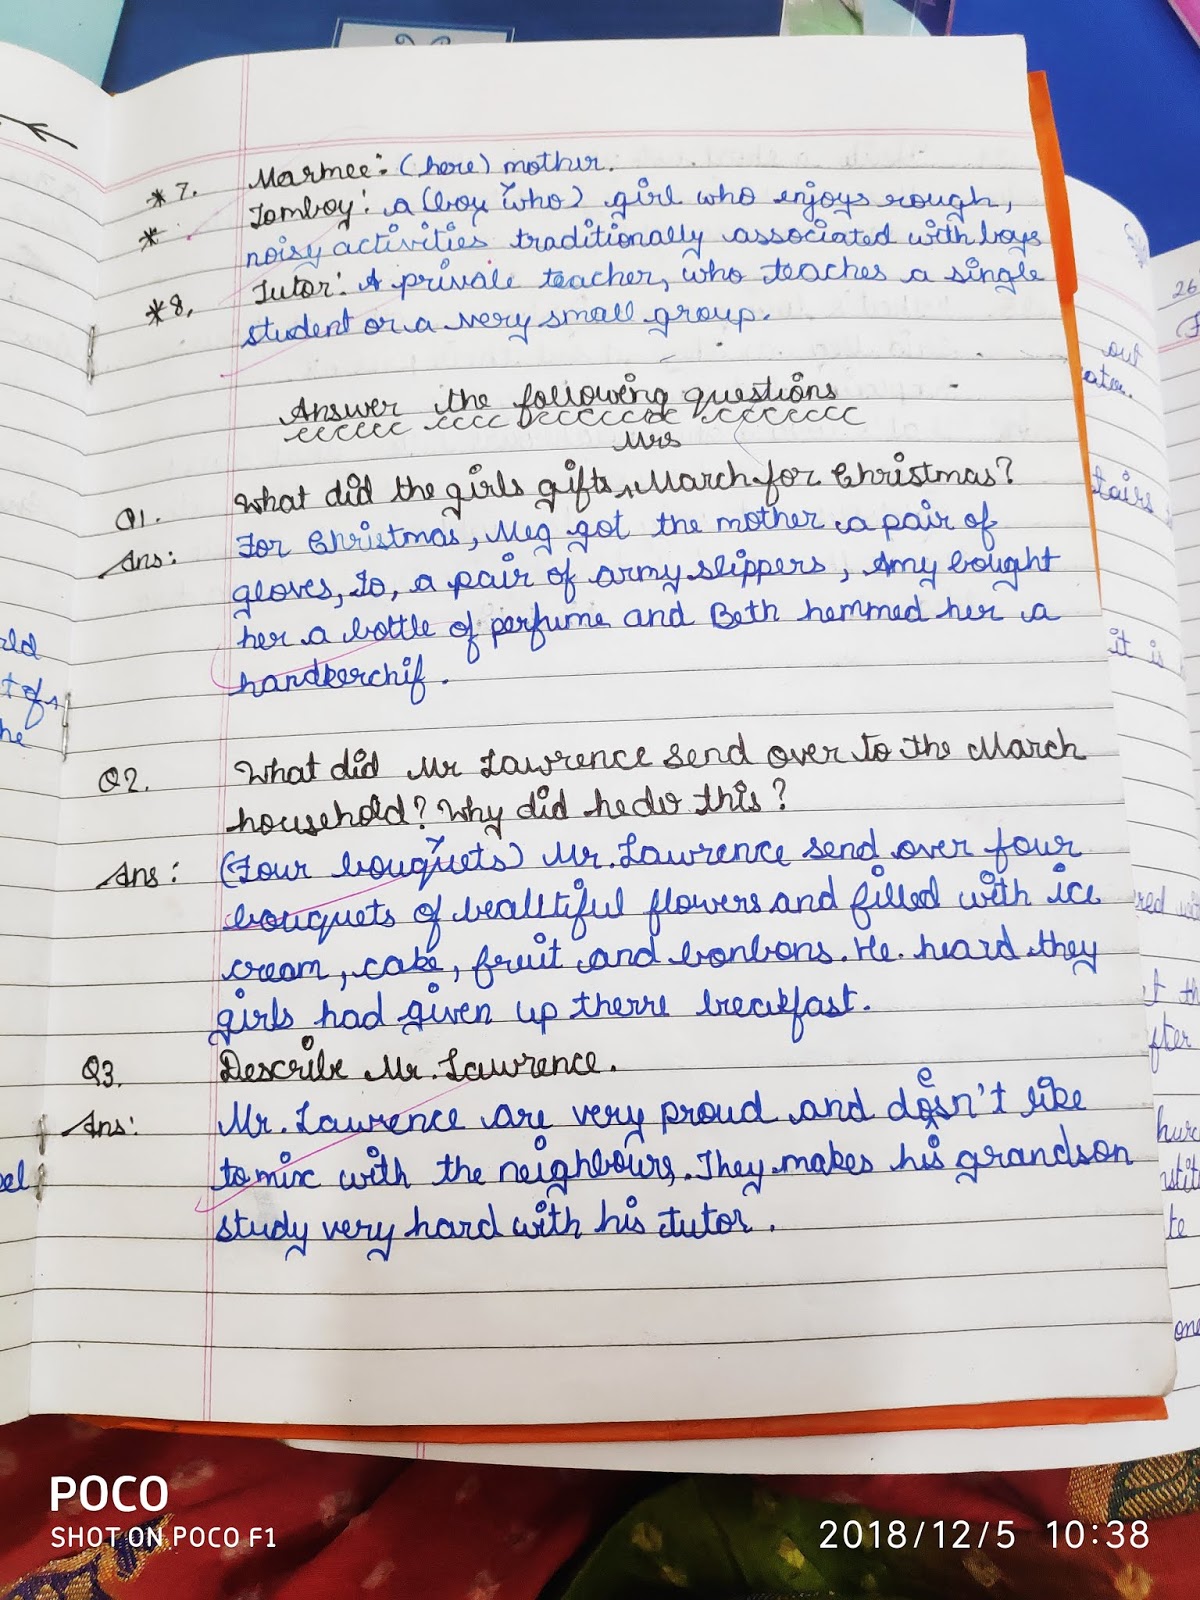 *7. Marmee: (here) mother.
* Tomboy: a (boy who) girl who enjoys rough,
noisy activities traditionally associated with boys
*8. Tutor: A private teacher, who teaches a single
student or a very small group.
Answer the following questions
Mrs
Q1. What did the girls gifts March for Christmas?
Ans: For Christmas, Meg got the mother a pair of
gloves, Jo, a pair of army slippers, Amy bought
her a bottle of perfume and Beth hemmed her a
handkerchif.
Q2. What did Mr Lawrence send over to the March
household? Why did he do this?
Ans: (Four bouquets) Mr. Lawrence send over four
bouquets of beautiful flowers and filled with ice
cream, cake, fruit and bonbons. He heard they
girls had given up there breakfast.
Q3. Describe Mr. Lawrence.
Ans: Mr. Lawrence are very proud and doesn't like
to mix with the neighbours. They makes his grandson
study very hard with his tutor.
out
it is
26
he
te
POCO
SHOT ON POCO F1
2018/12/5 10:38